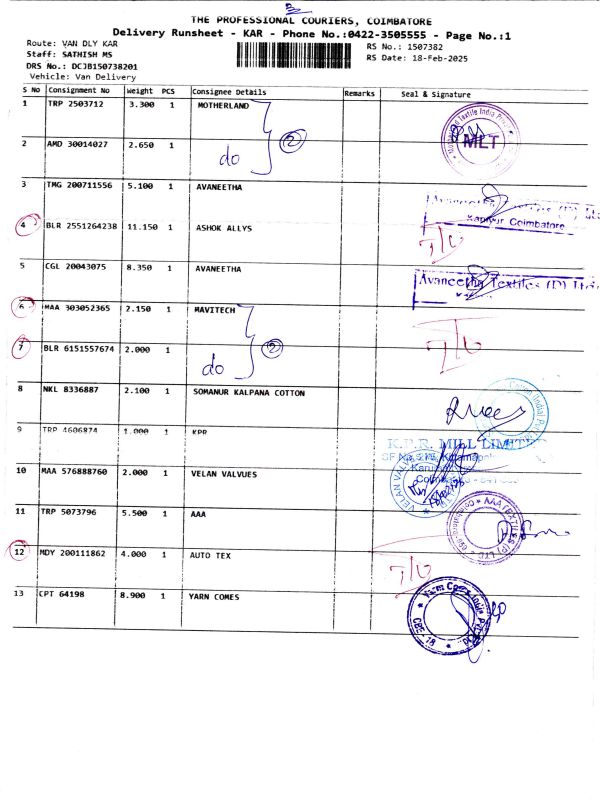 THE PROFESSIONAL COURIERS, COIMBATORE
Delivery Runsheet - KAR - Phone No.:0422-3505555 - Page No.:1
Route: VAN DLY KAR
RS No.: 1507382
Staff: SATHISH MS
RS Date: 18-Feb-2025
DRS No.: DCJB150738201
Vehicle: Van Delivery
S No Consignment No Weight PCS Consignee Details Remarks Seal & Signature
1 TRP 2503712 3.300 1 MOTHERLAND
2 AMD 30014027 2.650 1 do 2
MLT
3 TMG 200711556 5.100 1 AVANEETHA
Kaniyur Coimbatore
4 BLR 2551264238 11.150 1 ASHOK ALLYS
5 CGL 20043075 8.350 1 AVANEETHA
Avaneetha Textiles (P) Ltd
6 MAA 303052365 2.150 1 MAVITECH
7 BLR 6151557674 2.000 1 do 2
8 NKL 8336887 2.100 1 SOMANUR KALPANA COTTON
9 TRP 4606874 1.000 1 KPR
K.P.R. MILL LIMITED
10 MAA 576888760 2.000 1 VELAN VALVUES
VELAN VALVES
11 TRP 5073796 5.500 1 AAA
AAA TEXTILES (P) LTD
12 MDY 200111862 4.000 1 AUTO TEX
13 CPT 64198 8.900 1 YARN COMES
CBE - 18